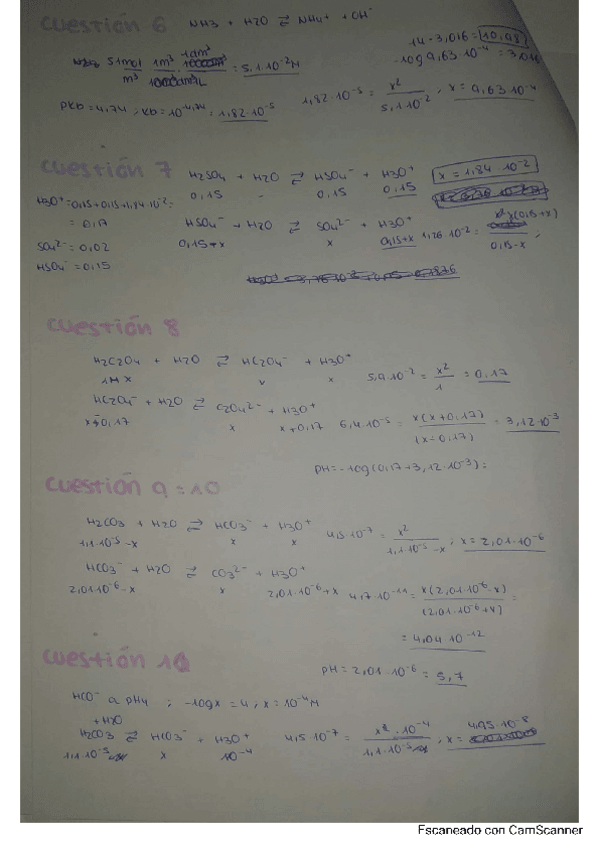 cuestión 6 NH3 + H2O ⇌ NH4+ + OH-
14 - 3,016 = 10,98
-log 9,63·10^-4 = 3,016
51 mol/m³ · 1m³ = 5,1·10^-2 M
PKb = 4,74 ; Kb = 10^-4,74 = 1,82·10^-5
1,82·10^-5 = x²/5,1·10^-2 ; x = 9,63·10^-4
cuestión 7 H2SO4 + H2O ⇌ HSO4- + H3O+ x = 1,84·10^-2
0,15 - 0,15 0,15
H3O+ = 0,15 + 0,15 + 1,84·10^-2 =
= 0,17
HSO4- + H2O ⇌ SO4^2- + H3O+
0,15+x x 0,15+x 1,26·10^-2 = x(0,15+x)/0,15-x ;
SO4^2- = 0,02
HSO4- = 0,15
cuestión 8
H2C2O4 + H2O ⇌ HC2O4- + H3O+
1M x x x 5,9·10^-2 = x²/1 = 0,17
HC2O4- + H2O ⇌ C2O4^2- + H3O+
0,17 x x+0,17 6,4·10^-5 = x(x+0,17)/(x-0,17) = 3,12·10^-3
PH = -log(0,17+3,12·10^-3) =
cuestión 9 = 10
H2CO3 + H2O ⇌ HCO3- + H3O+
1,1·10^-5 - x x x 4,5·10^-7 = x²/1,1·10^-5 - x ; x = 2,01·10^-6
HCO3- + H2O ⇌ CO3^2- + H3O+
2,01·10^-6 - x x 2,01·10^-6 + x 4,7·10^-11 = x(2,01·10^-6 - x)/(2,01·10^-6 + x) =
= 4,04·10^-12
PH = 2,01·10^-6 = 5,7
cuestión 10
HCO- a pH4 ; -log x = 4 ; x = 10^-4 M
+ H2O
H2CO3 ⇌ HCO3- + H3O+
1,1·10^-5 x 10^-4 4,5·10^-7 = x·10^-4/1,1·10^-5 ; x = 4,95·10^-8
Escaneado con CamScanner